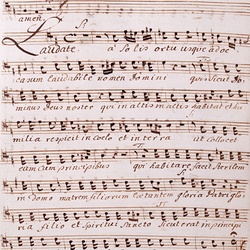 amen.
Laudate. So. a solis ortu usque ad oc
casum laudabile nomen Domini qui sicut Do
minus Deus noster qui in altis habitat et hu
milia respicit in coelo et in terra ut collocet
eum cum principibus qui habitare facit sterilem
in domo matrem filiorum laetantem gloria Patri glo
ria filio et Spiritui Sancto sicut erat in princi